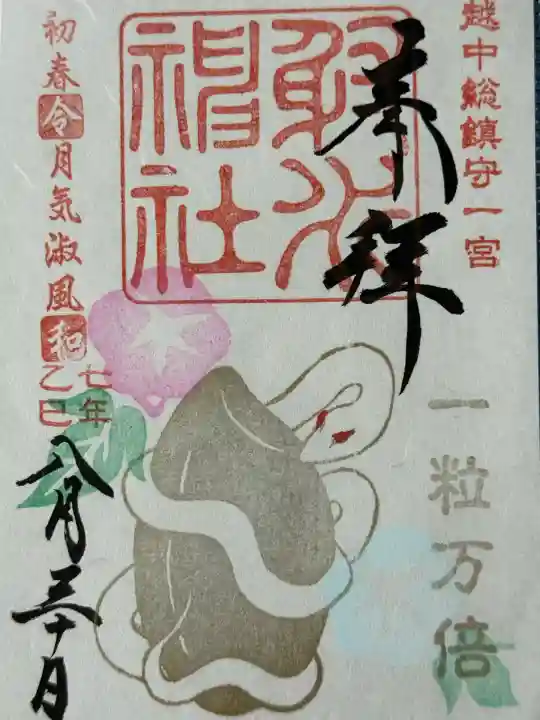 越中総鎮守一宮
奉拝
射水
神社
一粒万倍
初春令月気淑風和
七年
乙巳
八月三十日